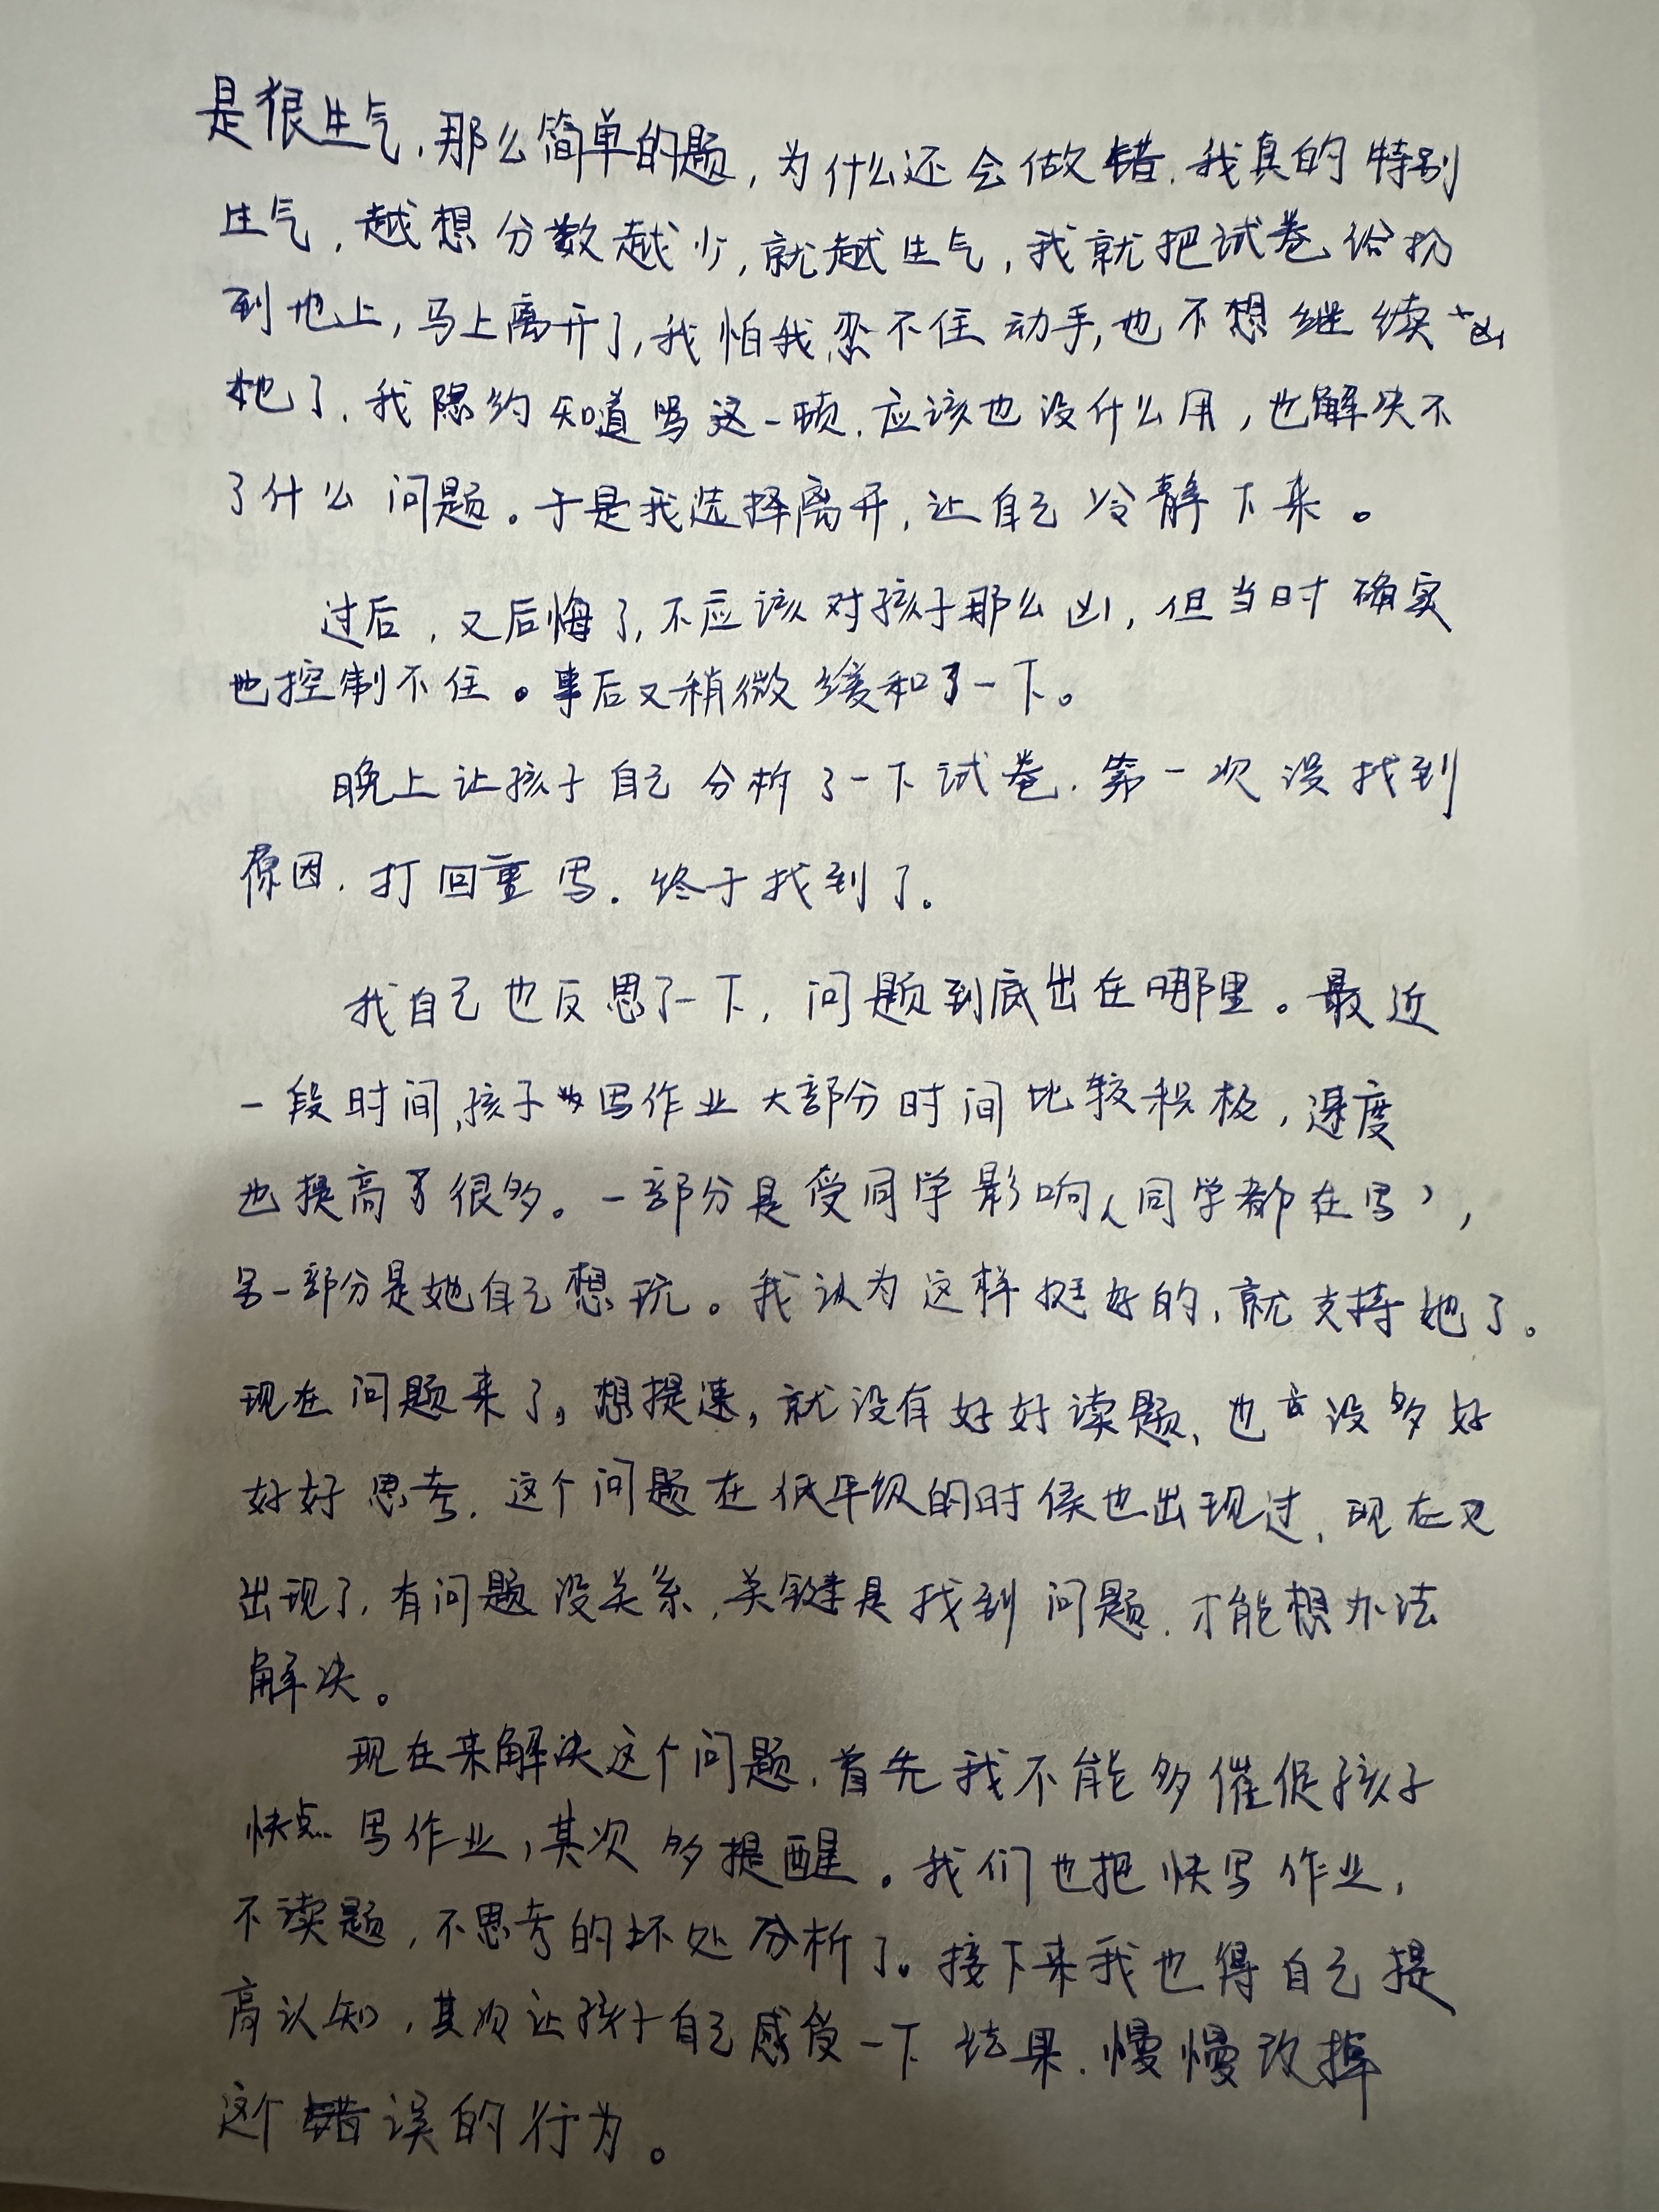 是很生气,那么简单的题,为什么还会做错.我真的特别
生气,越想分数越少,就越生气,我就把试卷给扔
到地上,马上离开了,我怕我忍不住动手,也不想继续凶
她了.我隐约知道骂这一顿.应该也没什么用,也解决不
了什么问题。于是我选择离开,让自己冷静下来。
过后,又后悔了,不应该对孩子那么凶,但当时确实
也控制不住。事后又稍微缓和了一下。
晚上让孩子自己分析了一下试卷.第一次没找到
原因.打回重写.终于找到了。
我自己也反思了一下,问题到底出在哪里。最近
一段时间,孩子写作业大部分时间比较积极,速度
也提高了很多。一部分是受同学影响(同学都在写),
另一部分是她自己想玩。我认为这样挺好的,就支持她了。
现在问题来了,想提速,就没有好好读题、也没多好
好好思考.这个问题在低年级的时候也出现过,现在又
出现了,有问题没关系,关键是找到问题.才能想办法
解决。
现在来解决这个问题.首先我不能多催促孩子
快点写作业,其次多提醒。我们也把快写作业,
不读题,不思考的坏处分析了。接下来我也得自己提
高认知,其次让孩子自己感受一下结果.慢慢改掉
这个错误的行为。